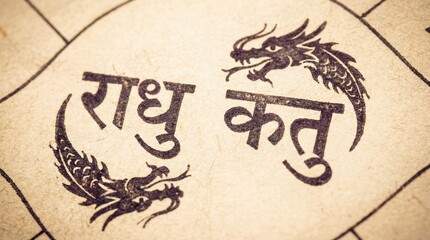 राधु कतु